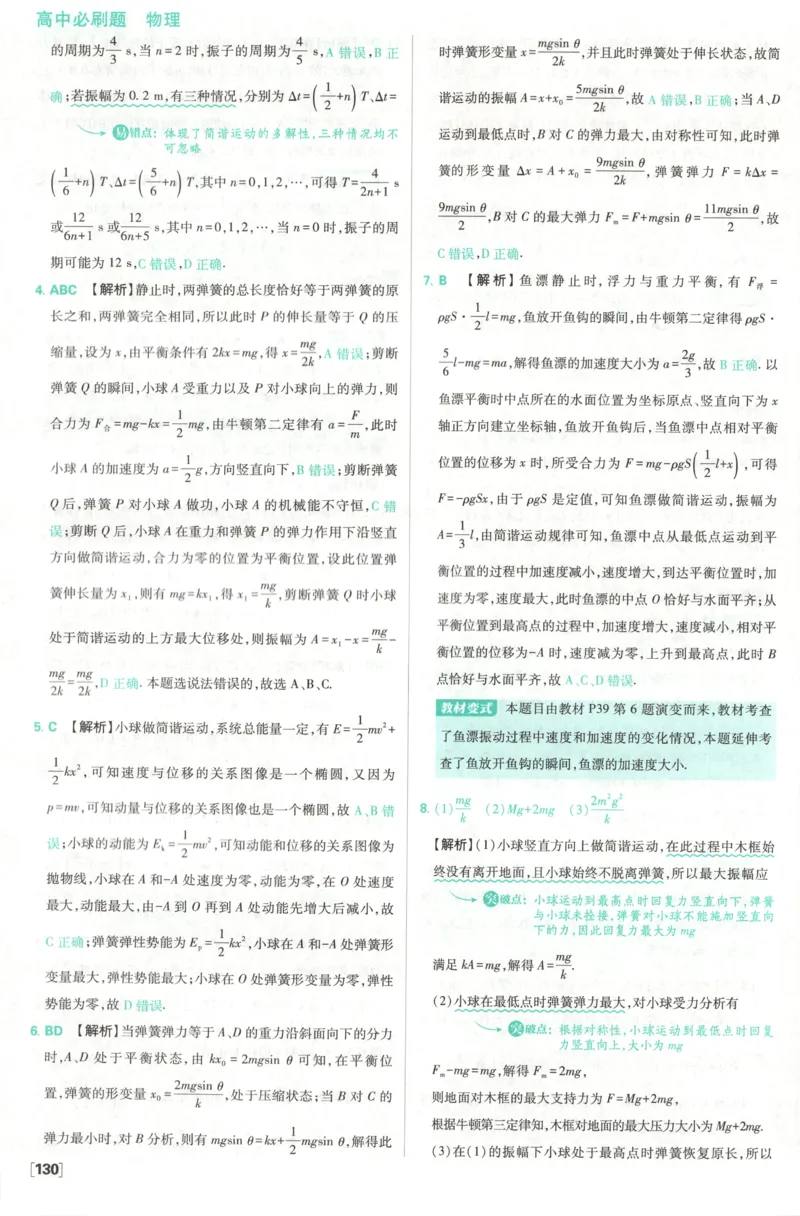 高中必刷题 物理
的周期为4/3 s,当 n=2 时,振子的周期为4/5 s,A 错误,B 正
确;若振幅为 0.2 m,有三种情况,分别为 Δt=(1/2+n)T、Δt=
易错点: 体现了简谐运动的多解性,三种情况均不
可忽略
(1/6+n)T、Δt=(5/6+n)T,其中 n=0,1,2,…,可得 T=4/(2n+1) s
或12/(6n+1) s 或12/(6n+5) s,其中 n=0,1,2,…,当 n=0 时,振子的周
期可能为 12 s,C 错误,D 正确.
4. ABC 【解析】静止时,两弹簧的总长度恰好等于两弹簧的原
长之和,两弹簧完全相同,所以此时 P 的伸长量等于 Q 的压
缩量,设为 x,由平衡条件有 2kx=mg,得 x=mg/2k,A 错误;剪断
弹簧 Q 的瞬间,小球 A 受重力以及 P 对小球向上的弹力,则
合力为 F合=mg-kx=1/2 mg,由牛顿第二定律有 a=F/m,此时
小球 A 的加速度为 a=1/2 g,方向竖直向下,B 错误;剪断弹簧
Q 后,弹簧 P 对小球 A 做功,小球 A 的机械能不守恒,C 错
误;剪断 Q 后,小球 A 在重力和弹簧 P 的弹力作用下沿竖直
方向做简谐运动,合力为零的位置为平衡位置,设此位置弹
簧伸长量为 x₁,则有 mg=kx₁,得 x₁=mg/k,剪断弹簧 Q 时小球
处于简谐运动的上方最大位移处,则振幅为 A=x₁-x=mg/k-
mg/2k=mg/2k,D 正确. 本题选说法错误的,故选 A、B、C.
5. C 【解析】小球做简谐运动,系统总能量一定,有 E=1/2 mv²+
1/2 kx²,可知速度与位移的关系图像是一个椭圆,又因为
p=mv,可知动量与位移的关系图像也是一个椭圆,故 A、B 错
误;小球的动能为 Eₖ=1/2 mv²,可知动能和位移的关系图像为
抛物线,小球在 A 和-A 处速度为零,动能为零,在 O 处速度
最大,动能最大,由-A 到 O 再到 A 处动能先增大后减小,故
C 正确;弹簧弹性势能为 Eₚ=1/2 kx²,小球在 A 和-A 处弹簧形
变量最大,弹性势能最大;小球在 O 处弹簧形变量为零,弹性
势能为零,故 D 错误.
6. BD 【解析】当弹簧弹力等于 A、D 的重力沿斜面向下的分力
时,A、D 处于平衡状态,由 kx₀=2mgsin θ 可知,在平衡位
置,弹簧的形变量 x₀=2mgsin θ/k,处于压缩状态;当 B 对 C 的
弹力最小时,对 B 分析,则有 mgsin θ=kx+1/2 mgsin θ,解得此
[130]
时弹簧形变量 x=mgsin θ/2k,并且此时弹簧处于伸长状态,故简
谐运动的振幅 A=x+x₀=5mgsin θ/2k,故 A 错误,B 正确;当 A、D
运动到最低点时,B 对 C 的弹力最大,由对称性可知,此时弹
簧的形变量 Δx=A+x₀=9mgsin θ/2k,弹簧弹力 F=kΔx=
9mgsin θ/2,B 对 C 的最大弹力 Fₘ=F+mgsin θ=11mgsin θ/2,故
C 错误,D 正确.
7. B 【解析】鱼漂静止时,浮力与重力平衡,有 F浮=
ρgS·1/2 l=mg,鱼放开鱼钩的瞬间,由牛顿第二定律得 ρgS·
5/6 l-mg=ma,解得鱼漂的加速度大小为 a=2g/3,故 B 正确. 以
鱼漂平衡时中点所在的水面位置为坐标原点、竖直向下为 x
轴正方向建立坐标轴,鱼放开鱼钩后,当鱼漂中点相对平衡
位置的位移为 x 时,所受合力为 F=mg-ρgS(1/2 l+x),可得
F=-ρgSx,由于 ρgS 是定值,可知鱼漂做简谐运动,振幅为
A=1/3 l,由简谐运动规律可知,鱼漂中点从最低点运动到平
衡位置的过程中加速度减小,速度增大,到达平衡位置时,加
速度为零,速度最大,此时鱼漂的中点 O 恰好与水面平齐;从
平衡位置到最高点的过程中,加速度增大,速度减小,相对平
衡位置的位移为-A 时,速度减为零,上升到最高点,此时 B
点恰好与水面平齐,故 A、C、D 错误.
教材变式 本题目由教材 P39 第 6 题演变而来,教材考查
了鱼漂振动过程中速度和加速度的变化情况,本题延伸考
查了鱼放开鱼钩的瞬间,鱼漂的加速度大小.
8. (1) mg/k (2) Mg+2mg (3) 2m²g²/k
【解析】(1)小球竖直方向上做简谐运动,在此过程中木框始
终没有离开地面,且小球始终不脱离弹簧,所以最大振幅应
突破点: 小球运动到最高点时回复力竖直向下,弹簧
与小球未拴接,弹簧对小球不能施加竖直向
下的力,因此回复力最大为 mg
满足 kA=mg,解得 A=mg/k.
(2)小球在最低点时弹簧弹力最大,对小球受力分析有
突破点: 根据对称性,小球运动到最低点时回复
力竖直向上,大小为 mg
Fₘ-mg=mg,解得 Fₘ=2mg,
则地面对木框的最大支持力为 F=Mg+2mg,
根据牛顿第三定律知,木框对地面的最大压力大小为 Mg+2mg.
(3)在(1)的振幅下小球处于最高点时弹簧恢复原长,所以